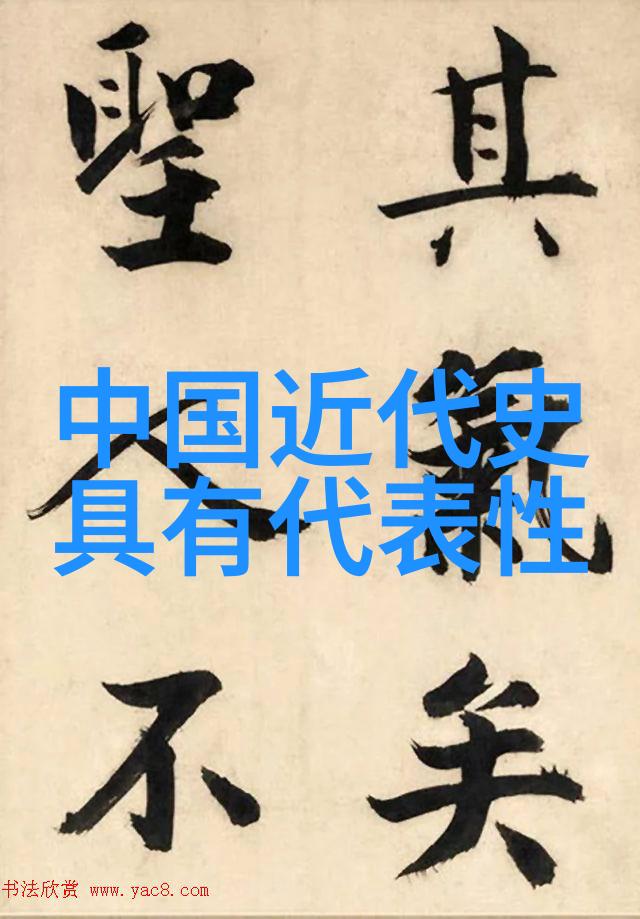 其氣矣
聖人不
中国近代史
具有代表性
书法欣赏 www.yac8.com